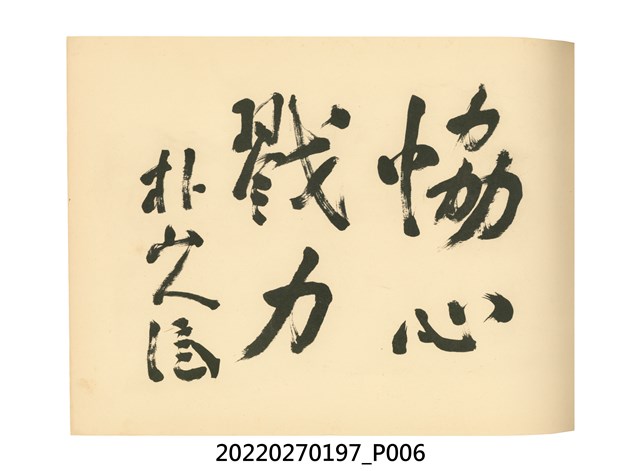 恊心
戮力
朴山人
20220270197_P006